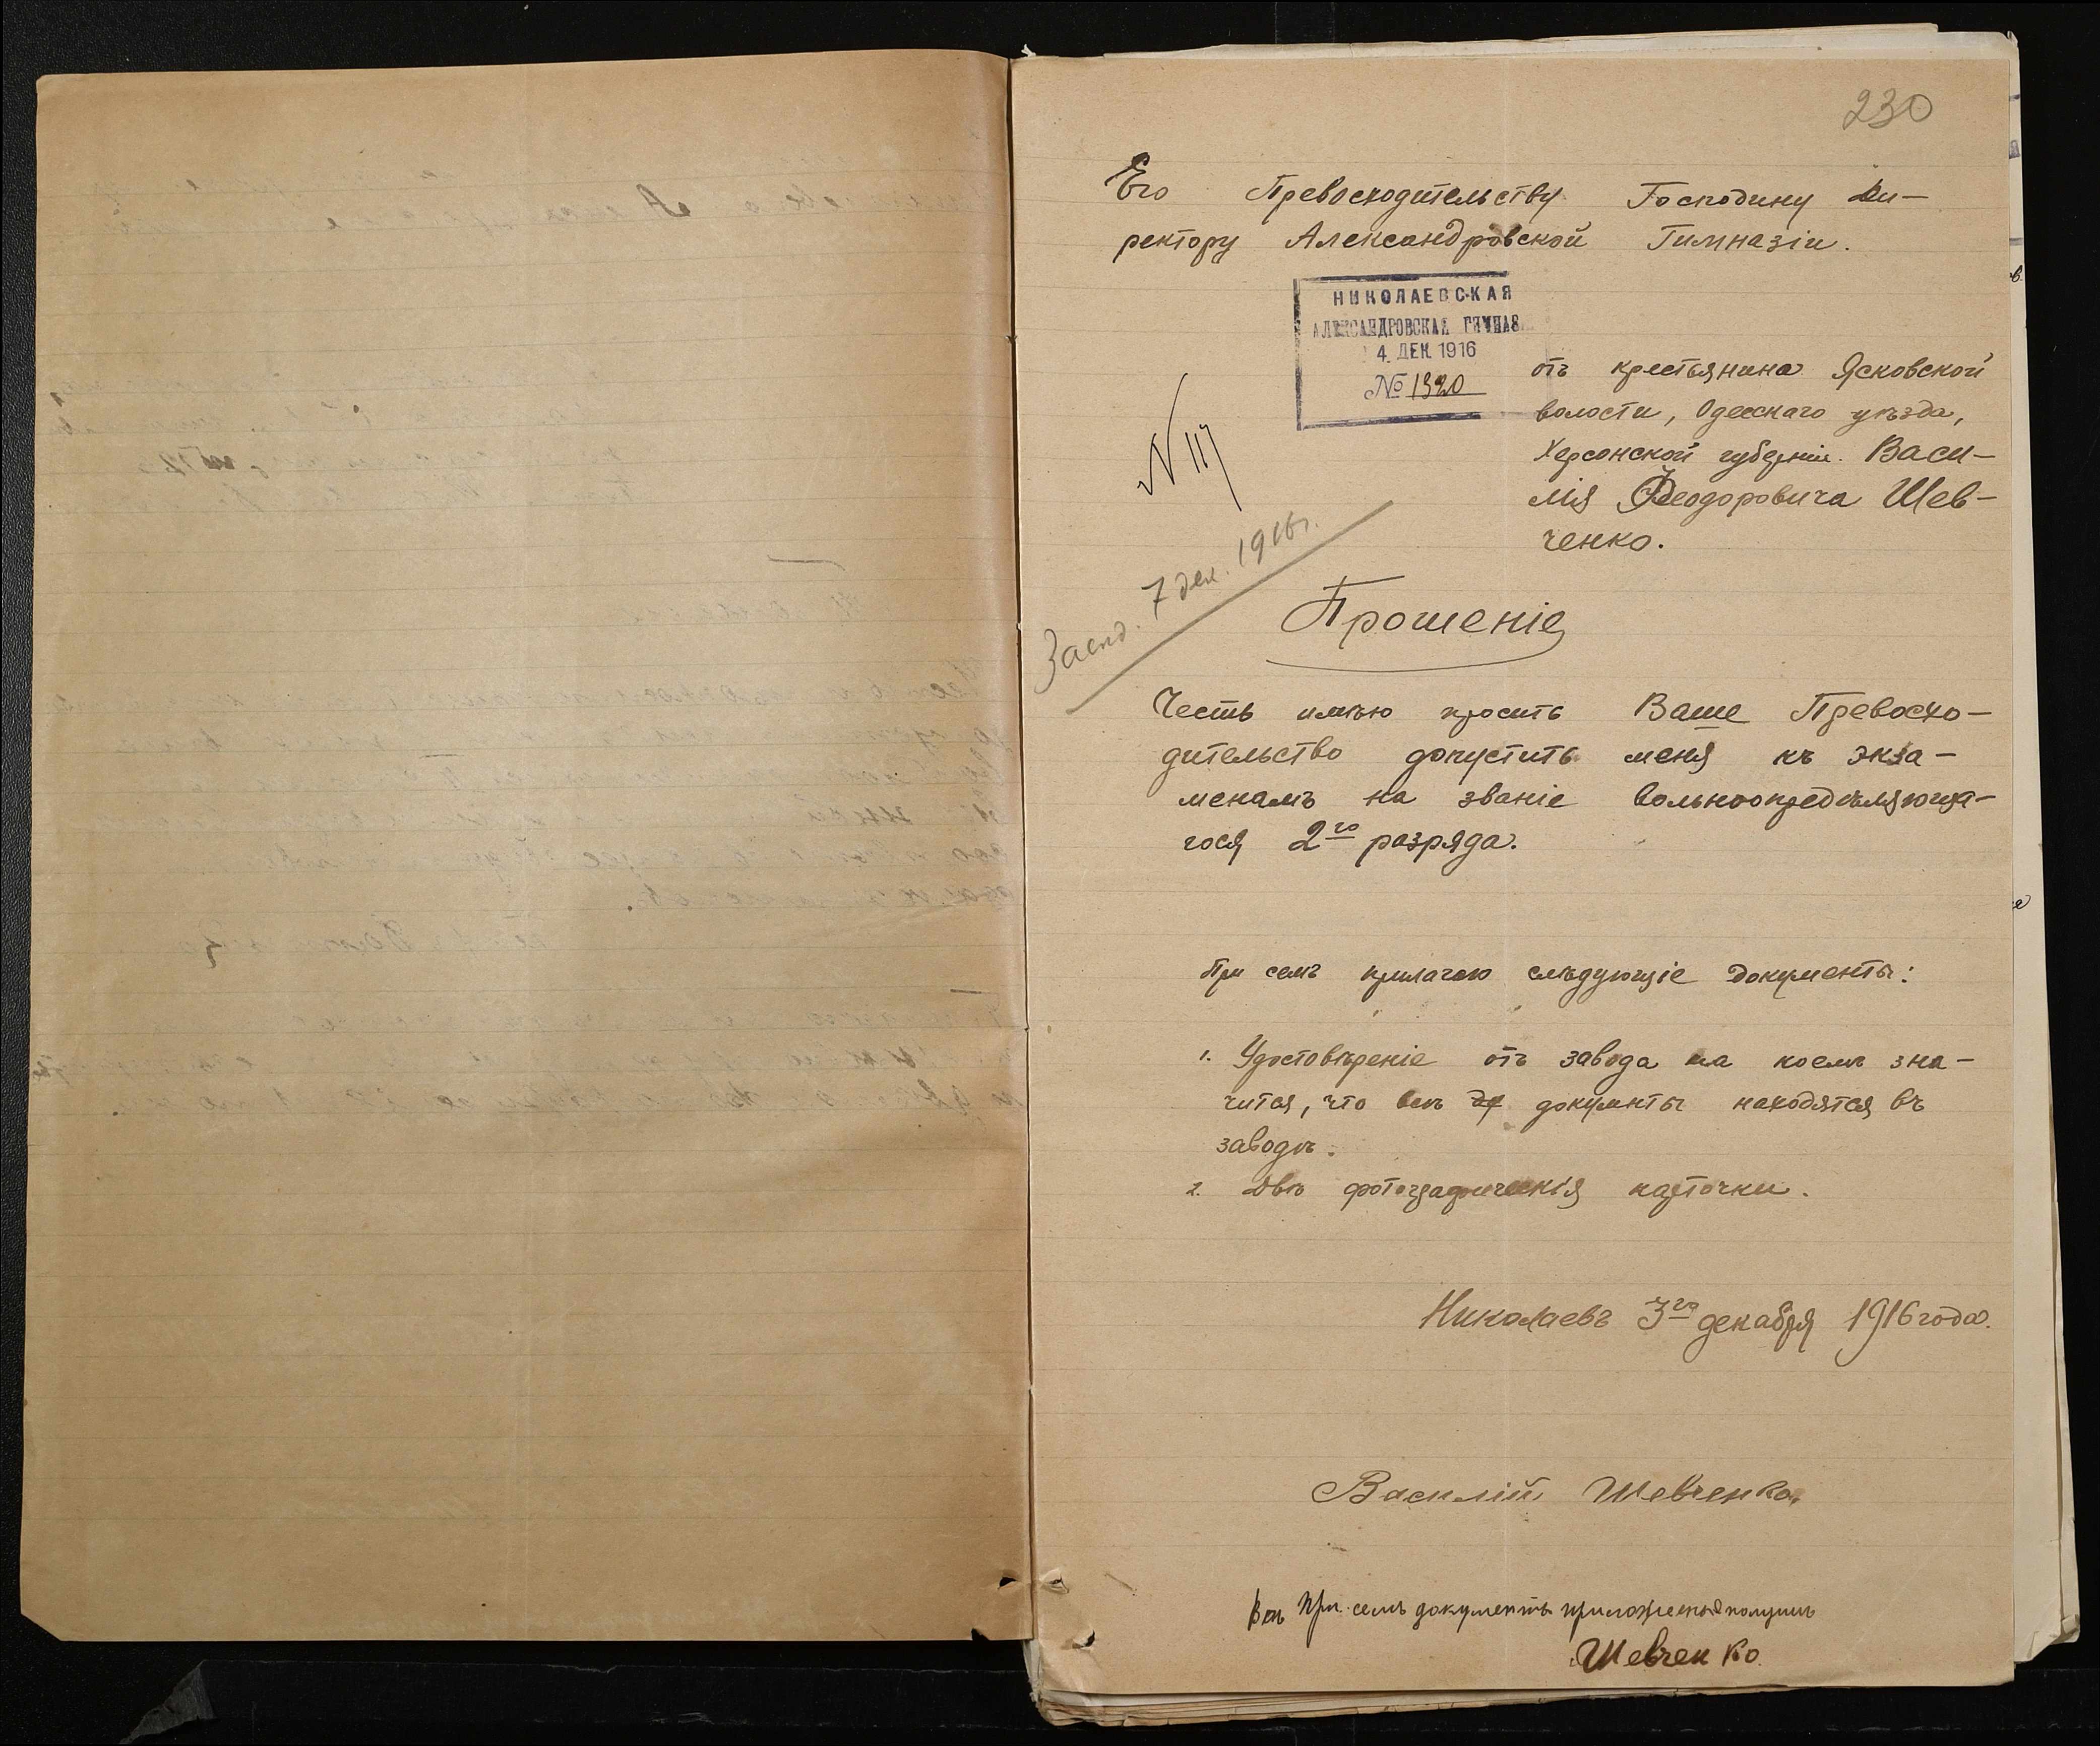 230
Его Превосходительству Господину Ди-
ректору Александровской Гимназіи.
НИКОЛАЕВСКАЯ
АЛЕКСАНДРОВСКАЯ ГИМНАЗ
4. ДЕК 1916
№ 1920
отъ крестьянина Ясковской
волости, Одесскаго уѣзда,
Херсонской губерніи. Васи-
лія Феодоровича Шев-
ченко.
7 дек. 1916 г.
Прошеніе
Честь имѣю просить Ваше Превосхо-
дительство допустить меня къ экза-
менамъ на званіе вольноопредѣляюща-
гося 2го разряда.
При семъ прилагаю слѣдующіе документы:
1. Удостовѣреніе отъ завода на коемъ зна-
чится, что всѣ документы находятся въ
заводѣ.
2. Двѣ фотографическія карточки.
Николаевъ 3го декабря 1916 года.
Василій Шевченко
Всѣ при семъ документы приложенныя получилъ
Шевченко